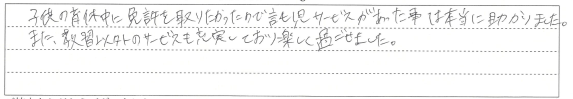 子供の育休中に免許を取りたかったので託児サービスがあった事は本当に助かりました。
また、教習以外のサービスも充実しており楽しく過ごせました。